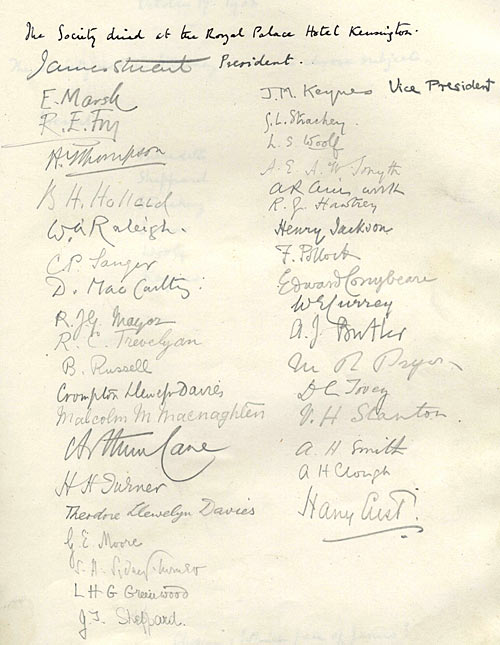 The Society dined at the Royal Palace Hotel Kensington.
James Stuart President.
E. Marsh
R. E. Fry
H. Y. Thompson
B H. Holland
W. A Raleigh.
C. P. Sanger
D. MacCarthy.
R. J. G. Mayor
R. C. Trevelyan
B. Russell
Crompton Llewelyn Davies
Malcolm M Macnaghten
Arthur Cane
H H Turner
Theodore Llewelyn Davies
G. E. Moore
S. A. Sydney-Turner
L H G Greenwood
J. T. Sheppard.
J. M. Keynes Vice President
G. L. Strachey.
L. S Woolf
A. E. A. W Smyth
A R Ainsworth
R. G. Hawtrey
Henry Jackson
F. Pollock
Edward Conybeare
W E Currey
A. J. Butler
M R Pryor
D C Tovey
V. H Stanton.
A. H Smith
A H Clough
Harry Cust.